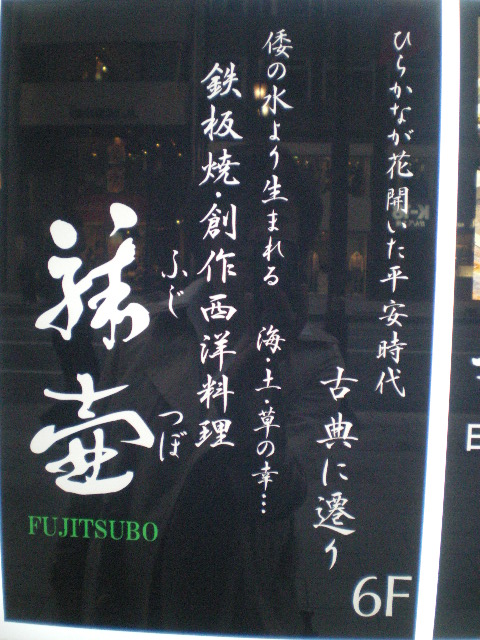 ひらかなが花開いた平安時代
古典に遷り
倭の水より生まれる 海・土・草の幸…
鉄板焼・創作西洋料理
ふじ つぼ
壷
FUJITSUBO
6F